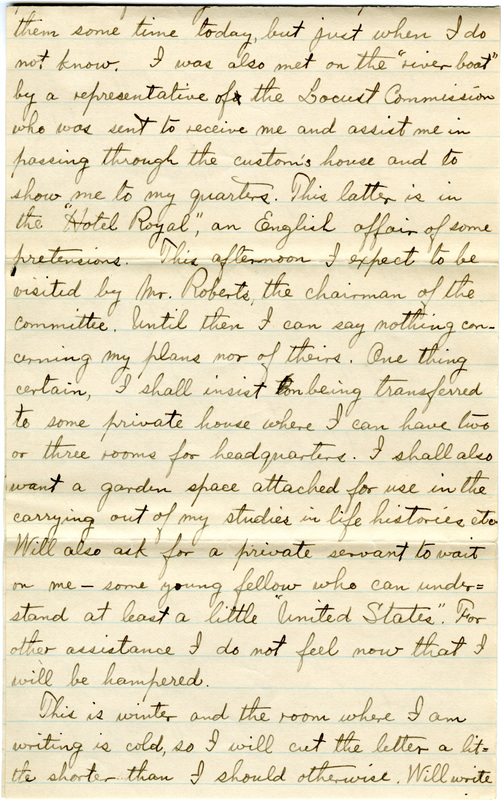 them some time today, but just when I do
not know. I was also met on the "river boat"
by a representative of the Locust Commission
who was sent to receive me and assist me in
passing through the custom's house and to
show me to my quarters. This latter is in
the "Hotel Royal", an English affair of some
pretensions. This afternoon I expect to be
visited by Mr. Roberts, the chairman of the
committee. Until then I can say nothing con-
cerning my plans nor of theirs. One thing
certain, I shall insist on being transferred
to some private house where I can have two
or three rooms for headquarters. I shall also
want a garden space attached for use in the
carrying out of my studies in life histories, etc.
Will also ask for a private servant to wait
on me — some young fellow who can under=
stand at least a little "United States". For
other assistance I do not feel now that I
will be hampered.
This is winter and the room where I am
writing is cold, so I will cut the letter a lit=
tle shorter than I should otherwise. Will write